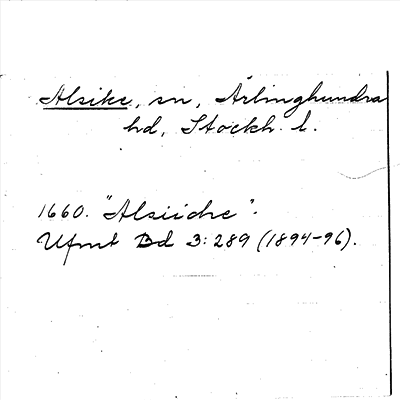 Alsike, sn, Ärlinghundra
hd, Stockh. l.
1660. "Alsiiche".
Ufmt Bd 3:289 (1894-96).